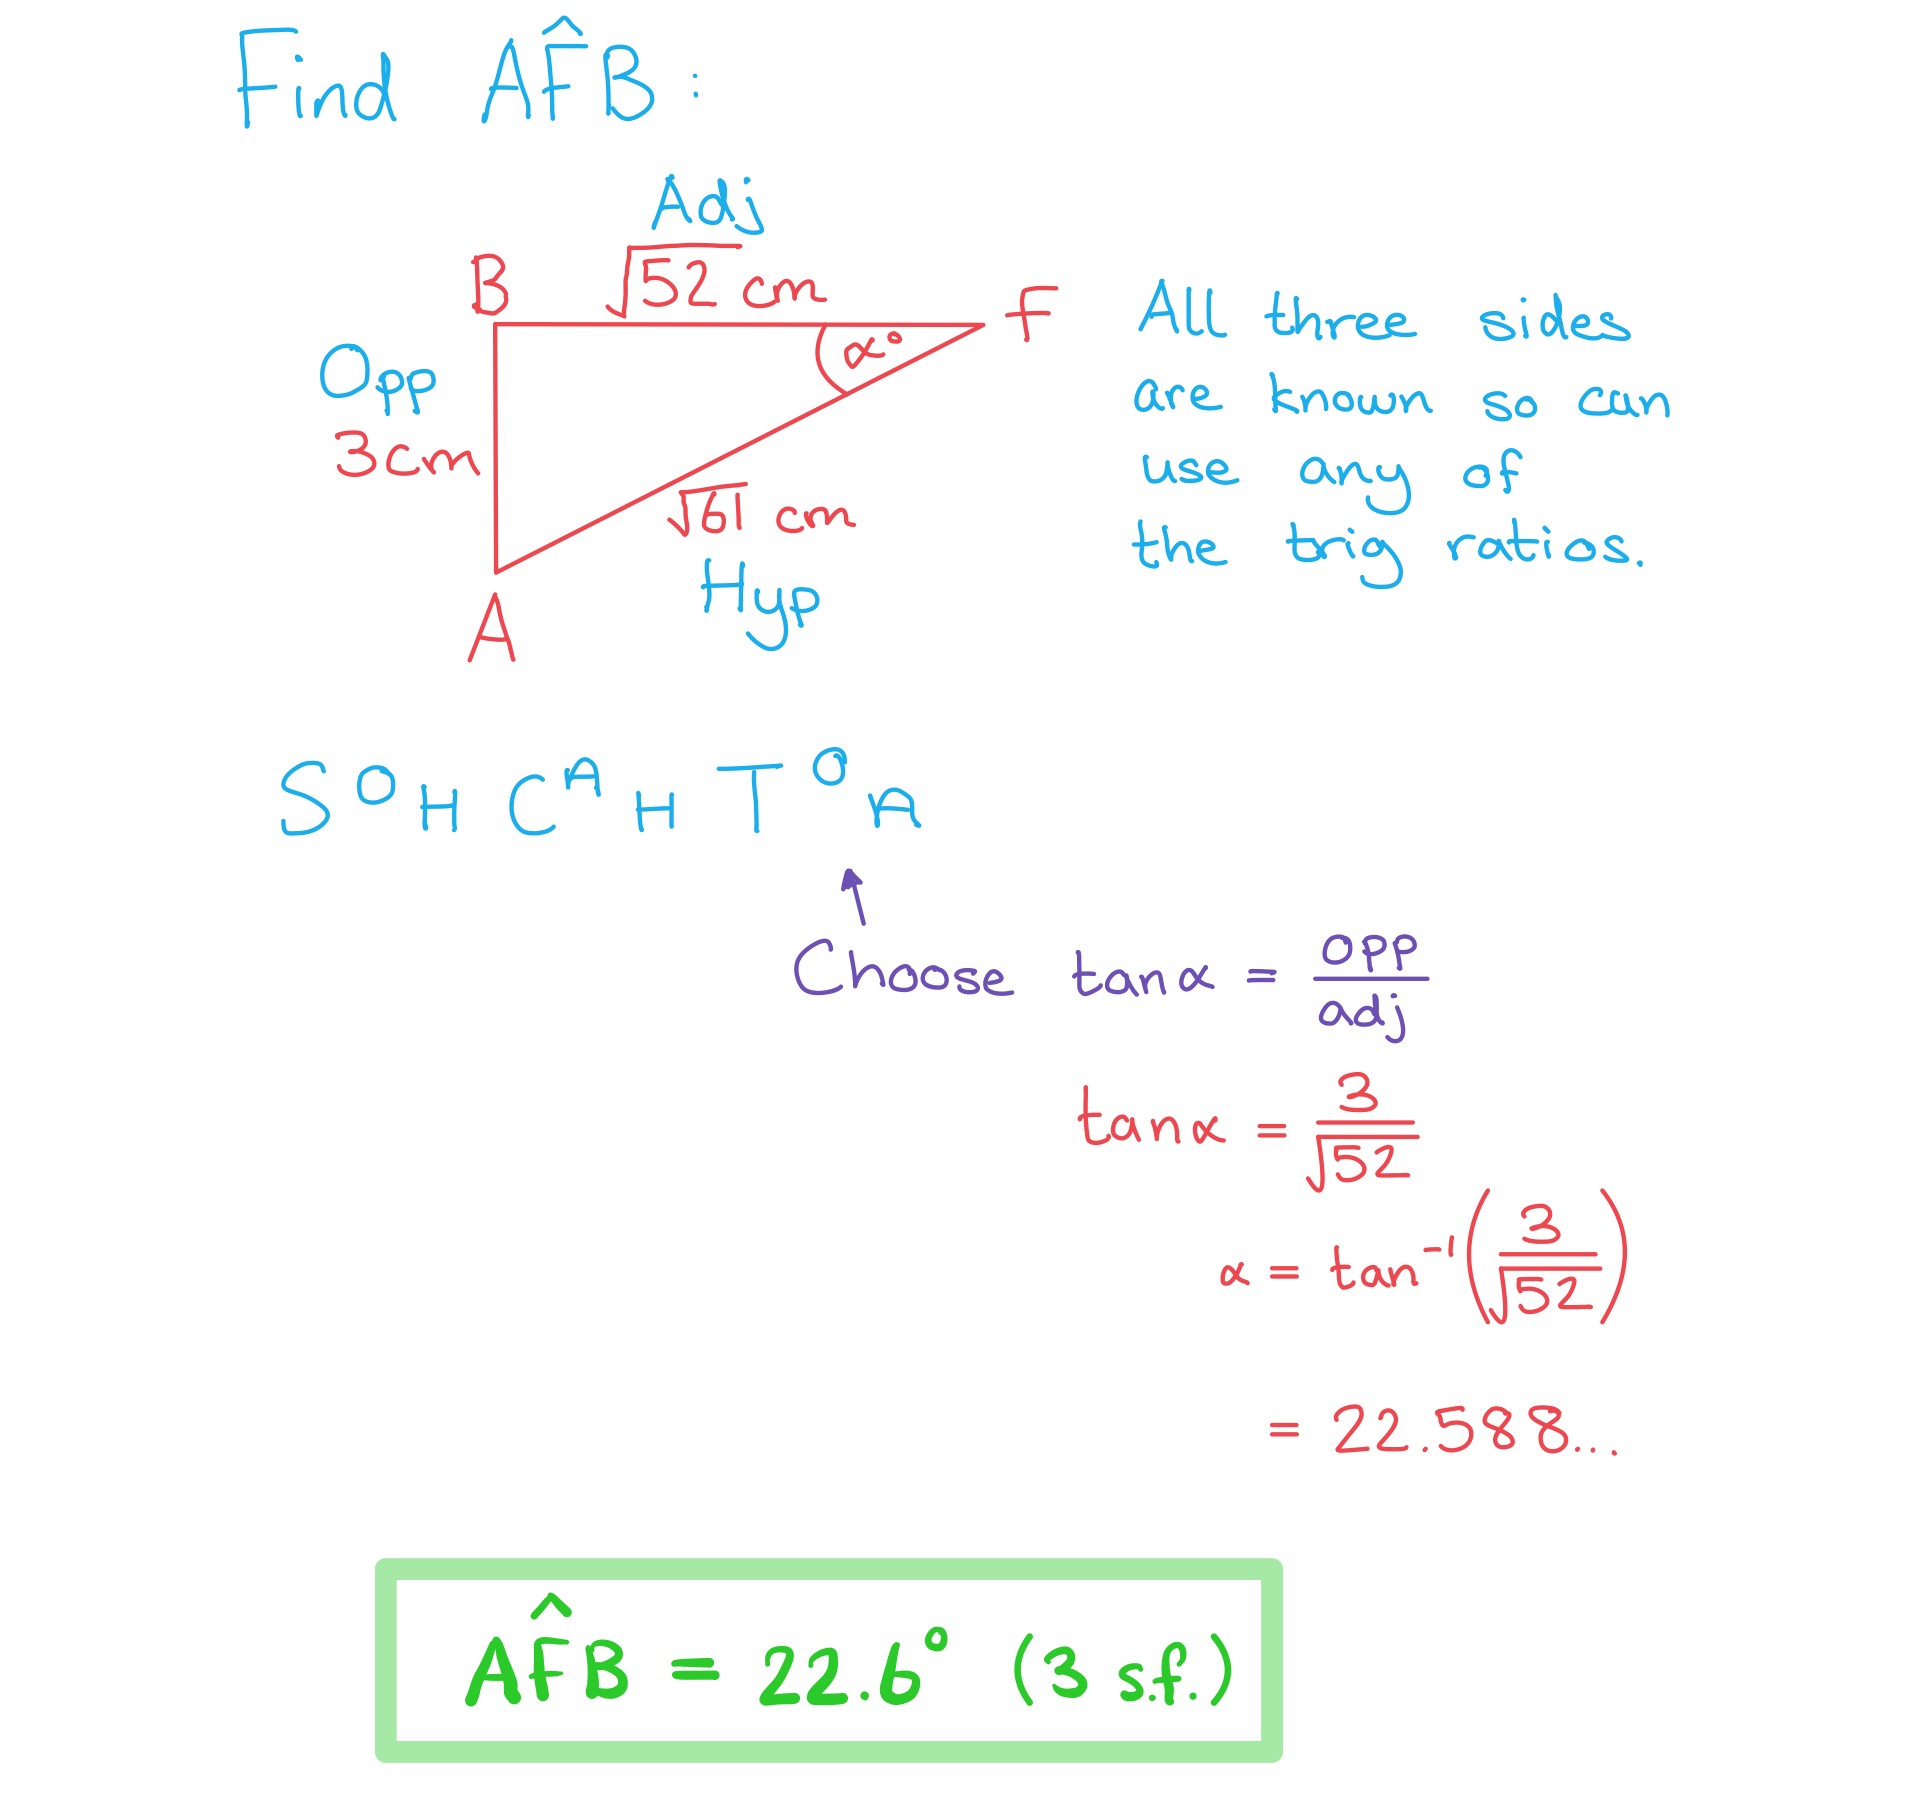 Find AF̂B :
Adj
√52 cm
B
F
α°
Opp
3cm
√61 cm
Hyp
A
All three sides
are known so can
use any of
the trig ratios.
S O H C A H T O A
Choose tanα = opp/adj
tanα = 3/√52
α = tan⁻¹(3/√52)
= 22.588...
AF̂B = 22.6° (3 s.f.)